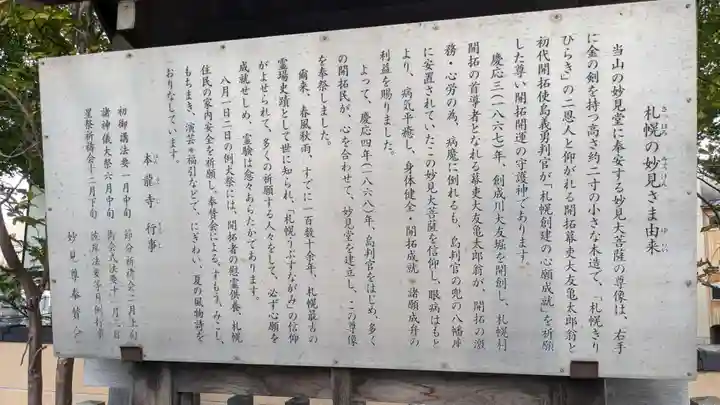 札幌の妙見さま由来
さっぽろ みょうけん ゆらい
当山の妙見堂に奉安する妙見大菩薩の尊像は、右手
に金の剣を持つ高さ約二寸の小さな木造で、「札幌きり
ひらき」の二恩人と仰がれる開拓幕吏大友亀太郎翁と
初代開拓使島義勇判官が「札幌創建の心願成就」を祈願
した尊い開拓開運の守護神であります。
慶応三(一八六七)年、創成川大友堀を開創し、札幌村
開拓の首導者となれる幕吏大友亀太郎翁が、開拓の激
務・心労の為、病魔に倒れるも、島判官の兜の八幡座
に安置されていたこの妙見大菩薩を信仰し、眼病はもと
より、病気平癒し、身体健全・開拓成就・諸願成弁の
利益を賜りました。
よって、慶応四年(一八六八)年、島判官をはじめ、多く
の開拓民が、心を合わせて、妙見堂を建立し、この尊像
を奉祭しました。
爾来、春風秋雨、すでに一百数十余年、札幌最古の
霊場史蹟として世に知られ、「札幌うぶすながみ」の信仰
がよせられて、多くの祈願する人々をして、必ず心願を
成就せしめ、霊験は愈々あらたかであります。
八月一日二日の例大祭には、開拓者の慰霊供養、札幌
住民の家内安全を祈願し、奉賛会による、すもう、みこし、
もちまき、演芸、福引などで、にぎわい、夏の風物詩を
おりなしています。
本龍寺 行事
初御講法要 一月中旬 節分祈祷会 二月上旬
諸神儀大祭 六月中旬 御会式法要 十一月三日
星祭祈祷会 十二月下旬 彼岸法要等月例行事
妙見尊奉賛会